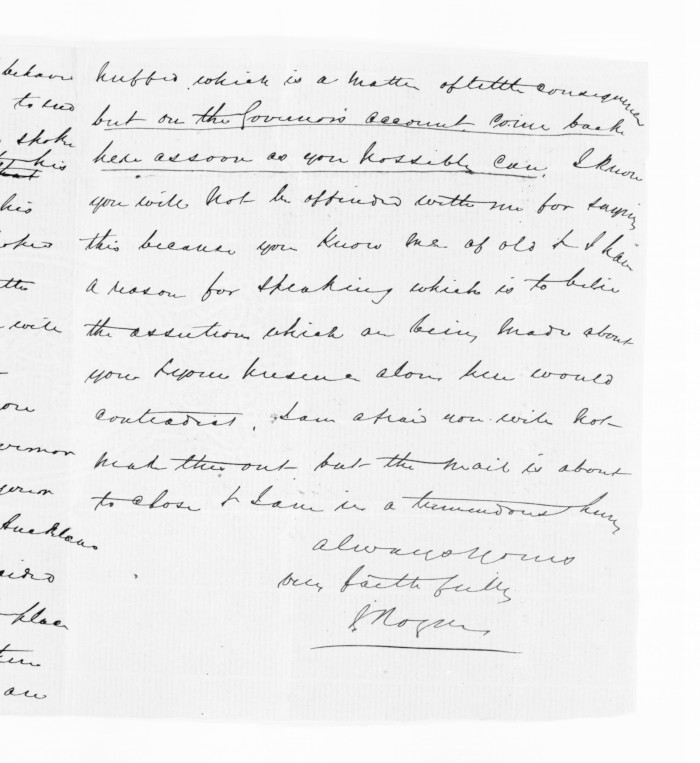 behave
to send
spoke
his
that
his
with
Governor
Auckland
place
are
which is a matter of little consequence
but on the Governor's account come back
here as soon as you possibly can. I know
you will not be offended with me for saying
this because you know me of old & I have
a reason for speaking which is to belie
the assertions which are being made about
you & your presence alone here would
contradict. I am afraid you will not
make this out but the mail is about
to close & I am in a tremendous hurry
always yours
very faithfully
J Rogers